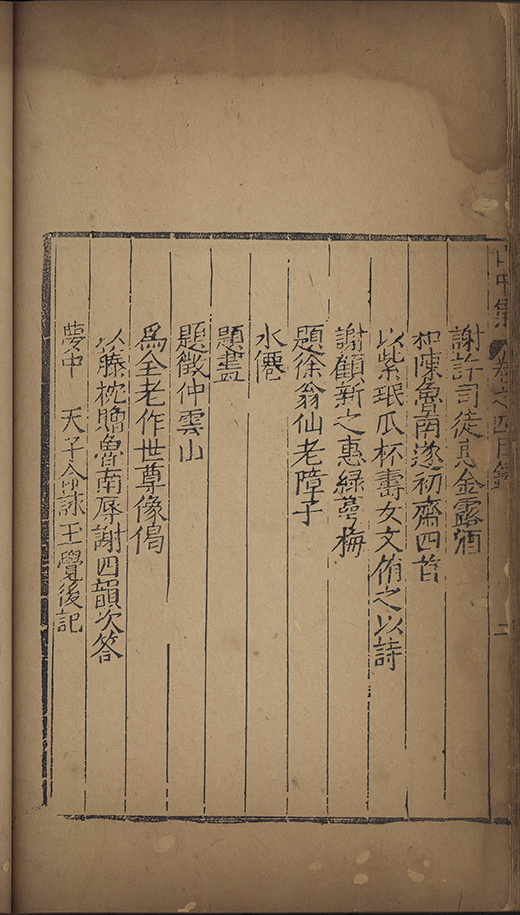 卷之四目錄
二
謝許司徒惠金露酒
和陳魯南遂初齋四首
以紫珉瓜杯壽女文侑之以詩
謝顧新之惠綠萼梅
題徐翁仙老障子
水僊
題畫
題徵仲雲山
為全老作世尊像偈
以藤枕贈魯南辱謝四韻次答
夢中 天子命詠王覺後記